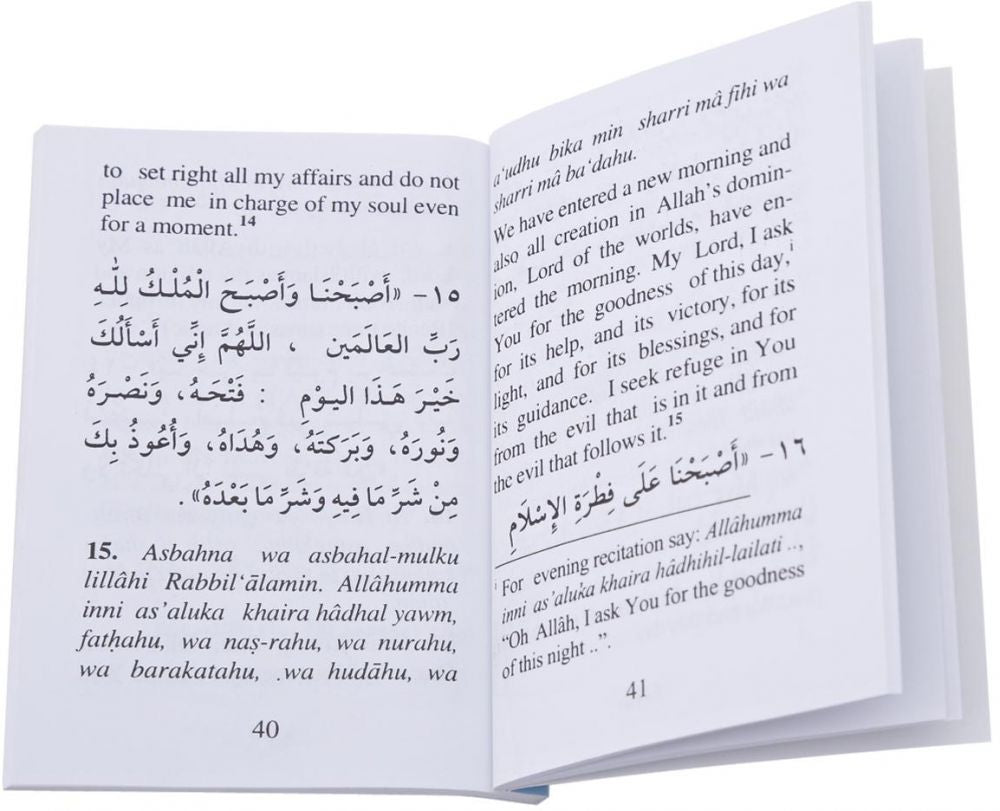 to set right all my affairs and do not
place me in charge of my soul even
for a moment.14
١٥- «أَصْبَحْنَا وَأَصْبَحَ الْمُلْكُ لِلَّهِ
رَبِّ العَالَمَين ، اللَّهُمَّ إِنِّي أَسْأَلُكَ
خَيْرَ هَذَا اليَومِ : فَتْحَهُ، وَنَصْرَهُ
وَنُورَهُ، وَبَرَكتَهُ، وَهُدَاهُ، وَأَعُوذُ بِكَ
مِنْ شَرِّ مَا فِيهِ وَشَرِّ مَا بَعْدَهُ» .
15. Asbahna wa asbahal-mulku
lillâhi Rabbil‘ālamin. Allâhumma
inni as’aluka khaira hâdhal yawm,
fatḥahu, wa naṣ-rahu, wa nurahu,
wa barakatahu, .wa hudāhu, wa
40
a‘udhu bika min sharri mâ fīhi wa
sharri mâ ba‘dahu.
We have entered a new morning and
also all creation in Allah’s domin-
ion, Lord of the worlds, have en-
tered the morning. My Lord, I ask
You for the goodness of this day,i
for its help, and its victory, for its
light, and for its blessings, and for
its guidance. I seek refuge in You
from the evil that is in it and from
the evil that follows it.15
١٦- «أَصْبَحْنَا عَلَى فِطْرَةِ الإِسْلَامِ
i For evening recitation say: Allâhumma
inni as’aluka khaira hâdhihil-lailati ..,
“Oh Allâh, I ask You for the goodness
of this night ..”.
41